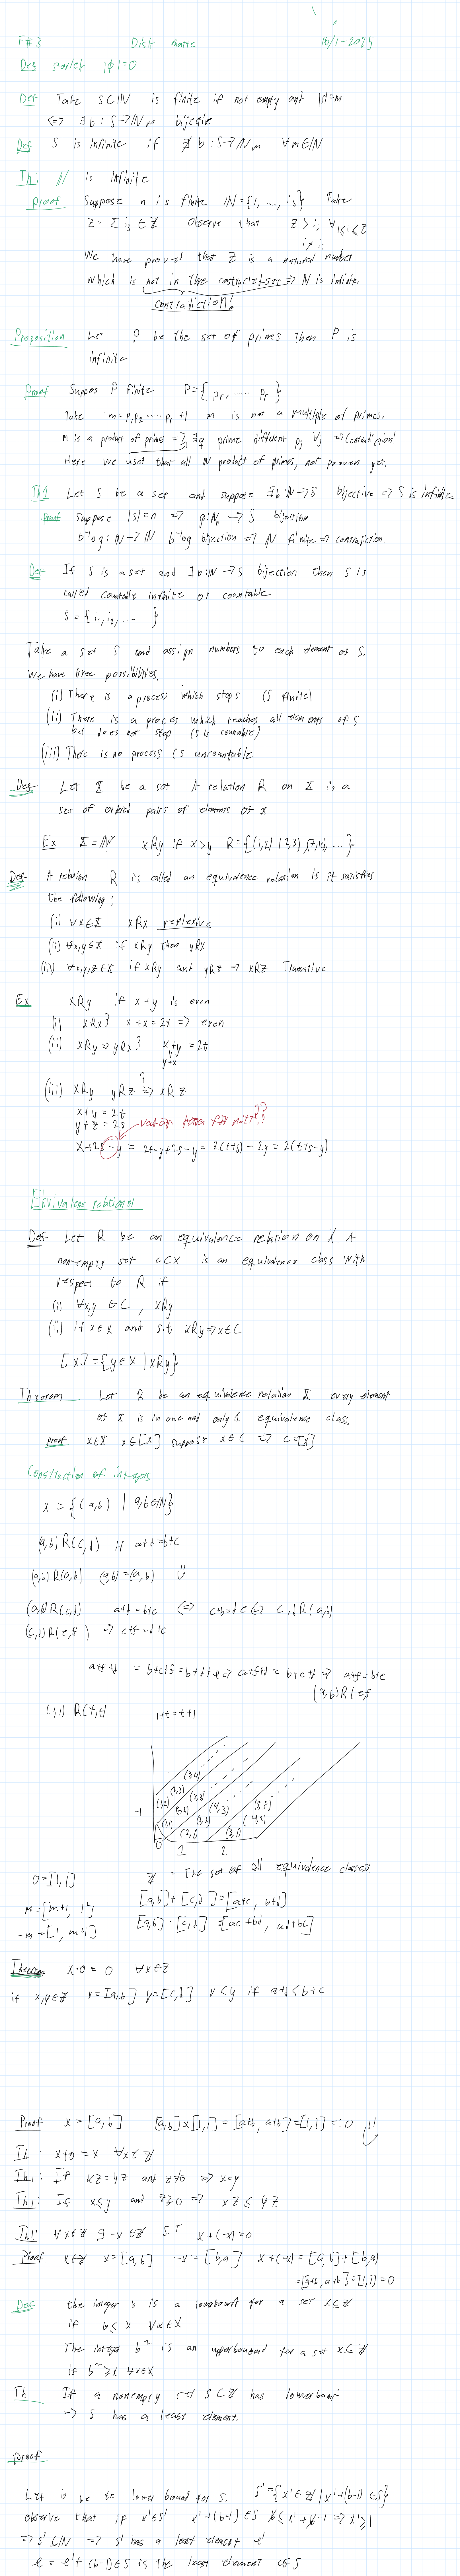 F#3 Disk matte 16/1-2025
Def storlek |∅|=0
Def Take S⊂ℕ is finite if not empty and |S|=m
<=> ∃b: S→ℕm bijective
Def S is infinite if ∄ b: S→ℕm ∀m∈ℕ
Th: ℕ is infinite
proof Suppose n is finite ℕ={1, ..., is} Take
z = Σ is ∈ ℤ Observe that z > ij ∀1≤j≤z
We have proved that z is a natural number
which is not in the => ℕ is infinite.
contradiction!
Proposition Let P be the set of primes then P is
infinite
Proof Suppos P finite P={pr, ..... pr}
Take m=p1p2 ..... pr +1 m is not a multiple of primes.
m is a product of primes => ∃q prime different pj ∀j => Contradiction!
Here we used that all ℕ product of primes, not proven yet.
Th1 Let S be a set and suppose ∃b:ℕ→S bijective => S is infinite
proof suppose |S|=n => g:ℕn → S bijection
b⁻¹∘g: ℕ→ℕ b⁻¹∘g bijection => ℕ finite => contradiction.
Def If S is a set and ∃b:ℕ→S bijection then S is
called countable infinite or countable
S = {i1, i2, ... }
Take a set S and assign numbers to each element of S.
We have tree possibilities.
(i) There is a process which stops (S finite)
(ii) There is a proces which reaches all elements of S
but does not stop (S is countable)
(iii) There is no process (S uncountable)
Def Let X be a set. A relation R on X is a
set of orderd pairs of elements of X
Ex X=ℕ xRy if x>y R={(1,2) (2,3) (7,10), ...}
Def A relation R is called an equivalence relation is it satisfies
the following:
(i) ∀x∈X xRx reflexive
(ii) ∀x,y∈X if xRy then yRx
(iii) ∀x,y,z∈X if xRy and yRz => xRz Transitive.
Ex xRy if x+y is even
(i) xRx? x+x=2x => even
(ii) xRy => yRx? x+y=2t
y+x
(iii) xRy yRz ?=> xRz
x+y = 2t
y+z = 2s
??
x+2s-y = 2t-y+2s-y = 2(t+s) - 2y = 2(t+s-y)
Ekvivalens relationer
Def Let R be an equivalence relation on X. A
non-empty set C⊂X is an equivalence class with
respect to R if
(i) ∀x,y ∈ C, xRy
(ii) if x∈X and s.t xRy => x∈C
[x]={y∈X | xRy}
Theorem Let R be an equivalence relation X every element
of X is in one and only 1 equivalence class.
proof x∈X x∈[x] suppose x∈C => C=[x]
Construction of integers
X = {(a,b) | a,b∈ℕ}
(a,b)R(c,d) if a+d=b+c
(a,b)R(a,b) (a,b)=(a,b) ü
(a,b)R(c,d) a+d=b+c <=> c+b=d+a <=> c,d R(a,b)
(c,d)R(e,f) => c+f=d+e
a+f+d = b+c+f=b+d+e => a+f+d = b+e+d => a+f=b+e
(a,b)R(e,f
(1,1) R(t,t) 1+t=t+1
(3,4)
(2,3) (3,3)
(1,2) (2,2) (4,3) (5,3)
-1 (1,1) (3,2) (4,2)
(2,1) (3,1)
0 1 2
0=[1,1] ℤ = The set of all equivalence classes.
m=[m+1, 1] [a,b]+[c,d]=[a+c, b+d]
-m=[1, m+1] [a,b]·[c,d]=[ac+bd, ad+bc]
Theorem x·0=0 ∀x∈ℤ
if x,y∈ℤ x=[a,b] y=[c,d] x<y if a+d<b+c
Proof x=[a,b] [a,b]x[1,1]=[a+b, a+b]=[1,1]=:0 ü
Th: x+0=x ∀x∈ℤ
Th1: If xz=yz and z≠0 => x=y
Th1: If x≤y and z≥0 => xz≤yz
Th1: ∀x∈ℤ ∃-x∈ℤ ST x+(-x)=0
Proof x∈ℤ x=[a,b] -x=[b,a] x+(-x)=[a,b]+[b,a)
=[a+b, a+b]=[1,1]=0
Def the integer b is a lowebount for a set X⊆ℤ
if b≤x ∀x∈X
The integer b~ is an upperbound for a set X⊆ℤ
if b~≥x ∀x∈X
Th If a nonempty set S⊂ℤ has lowerbount
-> S has a least element.
proof
Let b be te lower bound for S. S'={x'∈ℤ | x'+(b-1)∈S}
observe that if x'∈S' x'+(b-1)∈S b≤x'+b-1 => x'≥1
=> S'⊂ℕ => S' has a least element e'
e = e'+(b-1)∈S is the least element of S